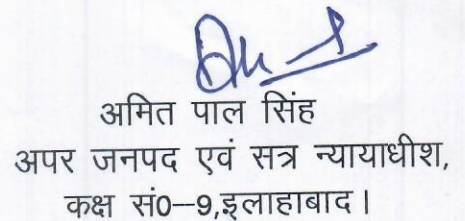 अमित पाल सिंह
अपर जनपद एवं सत्र न्यायाधीश,
कक्ष सं0–9,इलाहाबाद।